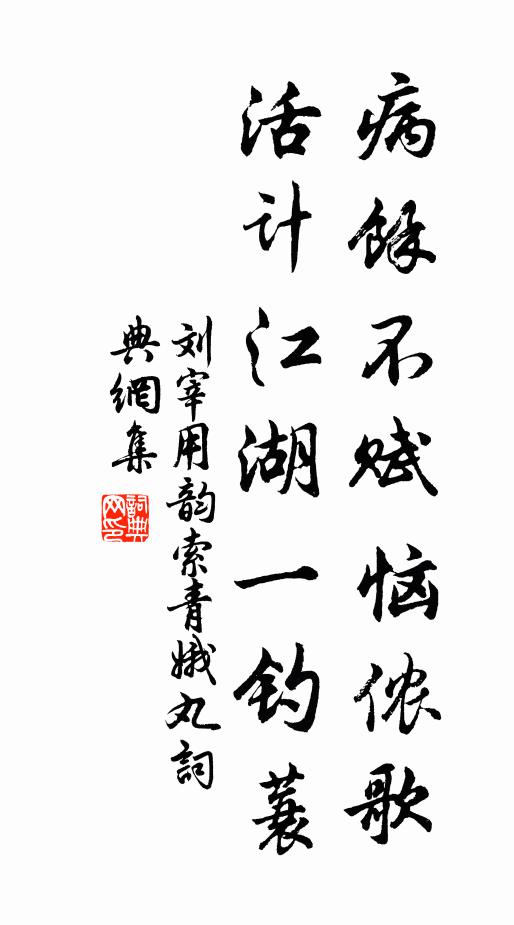 病餘不赋恼侬歌
活计江湖一钓蓑
刘宰用韵索青娥丸詞
典網集
詞典网印